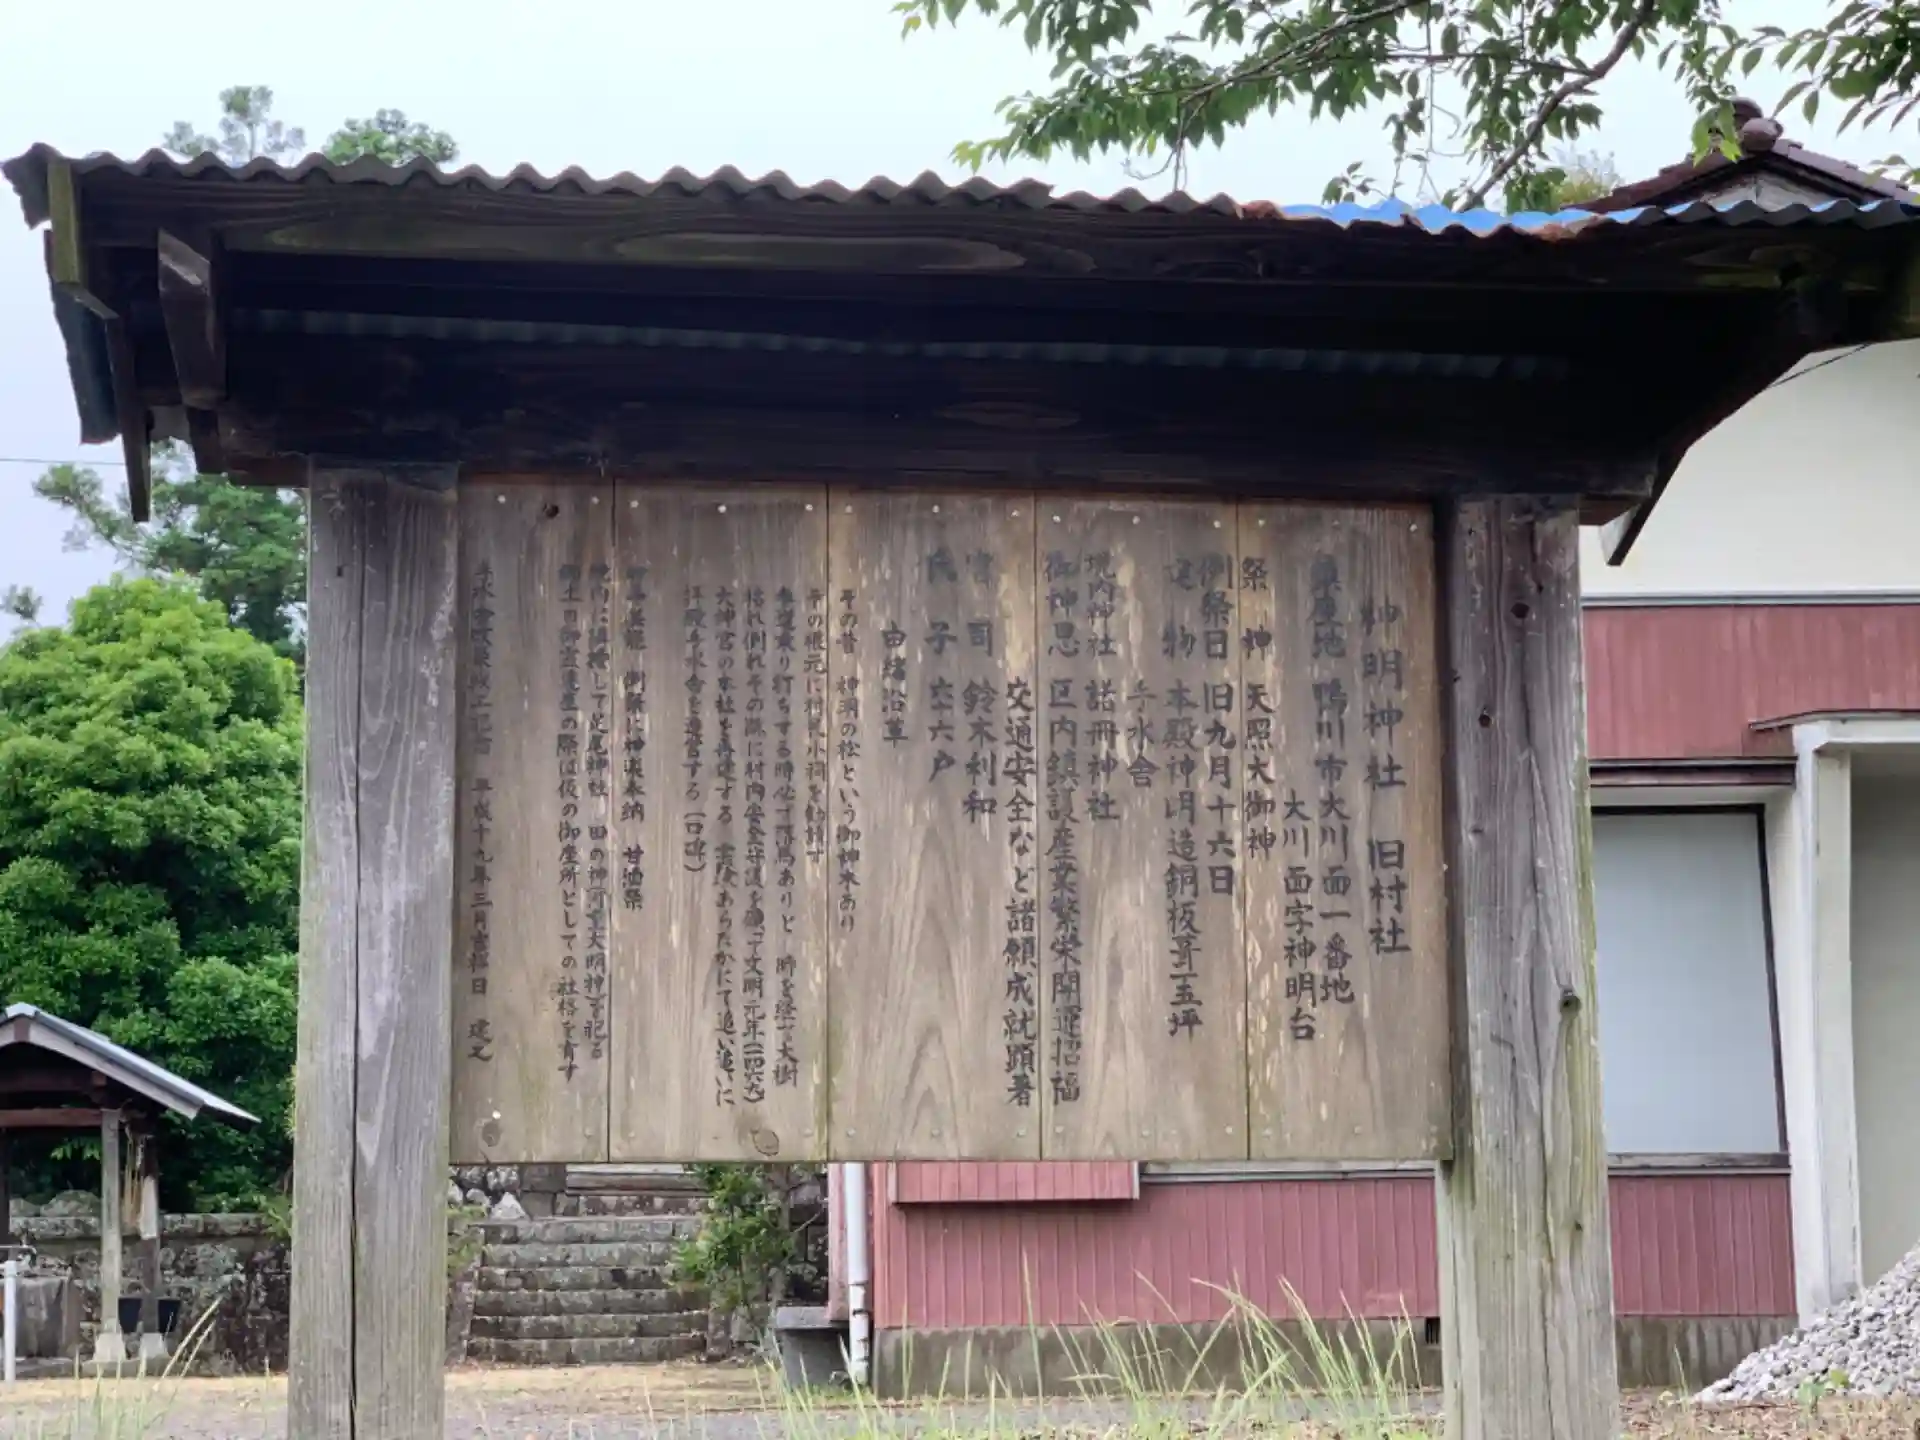 神明神社 旧村社
鎮座地 鴨川市大川面一番地
大川面字神明台
祭神 天照大御神
例祭日 旧九月十六日
建物 本殿神明造銅板葺一五坪
手水舎
境内神社 諾冊神社
御神恩 区内鎮護産業繁栄開運招福
交通安全など諸願成就顕著
宮司 鈴木利和
氏子 六十六戸
由緒沿革
その昔 神明の松という御神木あり
その根元に村民小祠を勧請す
無道乗り打ちする時必ず落馬ありと 時を経て大樹
枯れ倒れその際に村内安全守護を
文明元年(一四六九)
大神宮の本社を再建する 霊験あらたかにて追い追いに
拝殿手水舎を造営する(口碑)
例祭に神楽奉納 甘酒祭
境内に
して足尾神社 田の神
大明神を祀る
の際は仮の御座所としての社格を有す
手水舎改築竣工記念 平成十九年三月吉祥日 建之